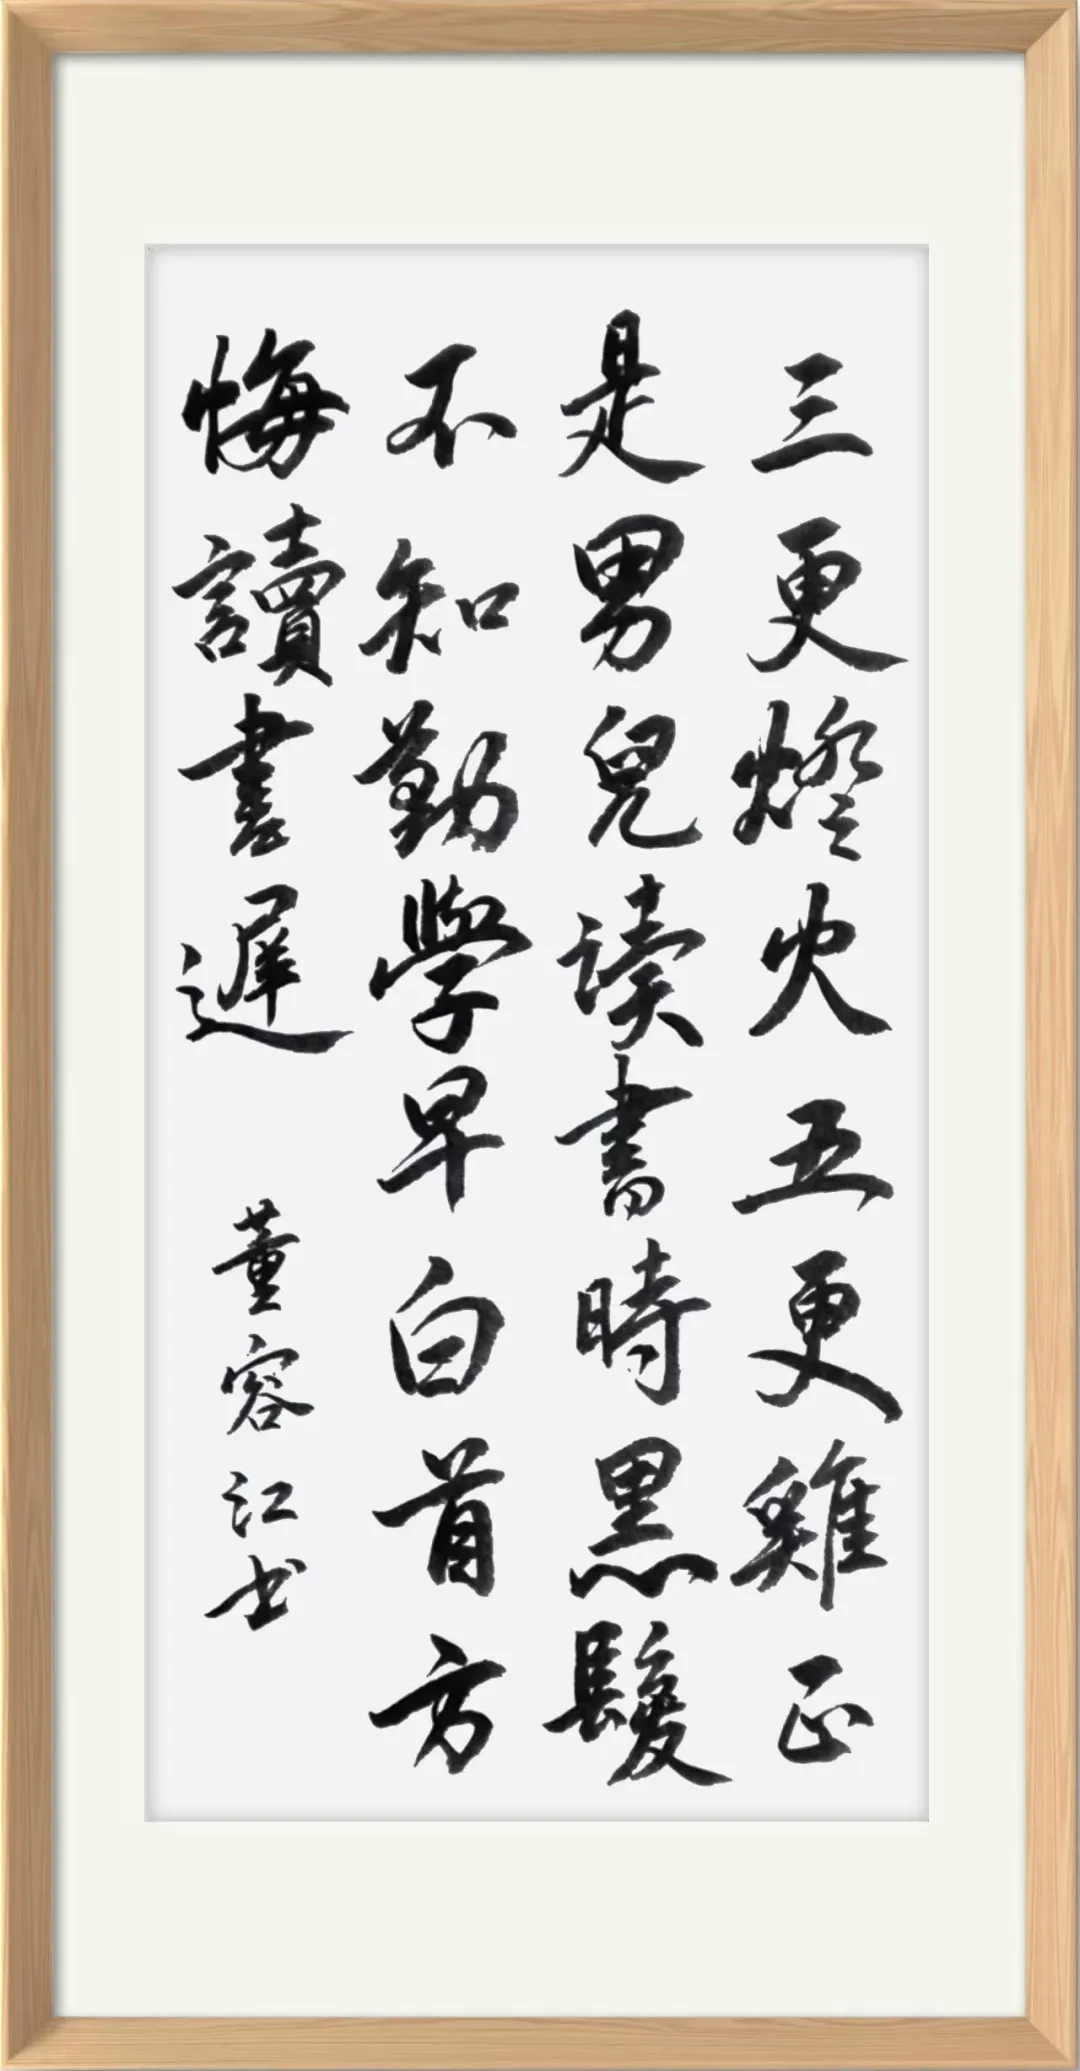 三更燈火五更雞正
是男兒读書時黑髮
不知勤學早白首方
悔讀書遲
董容江书